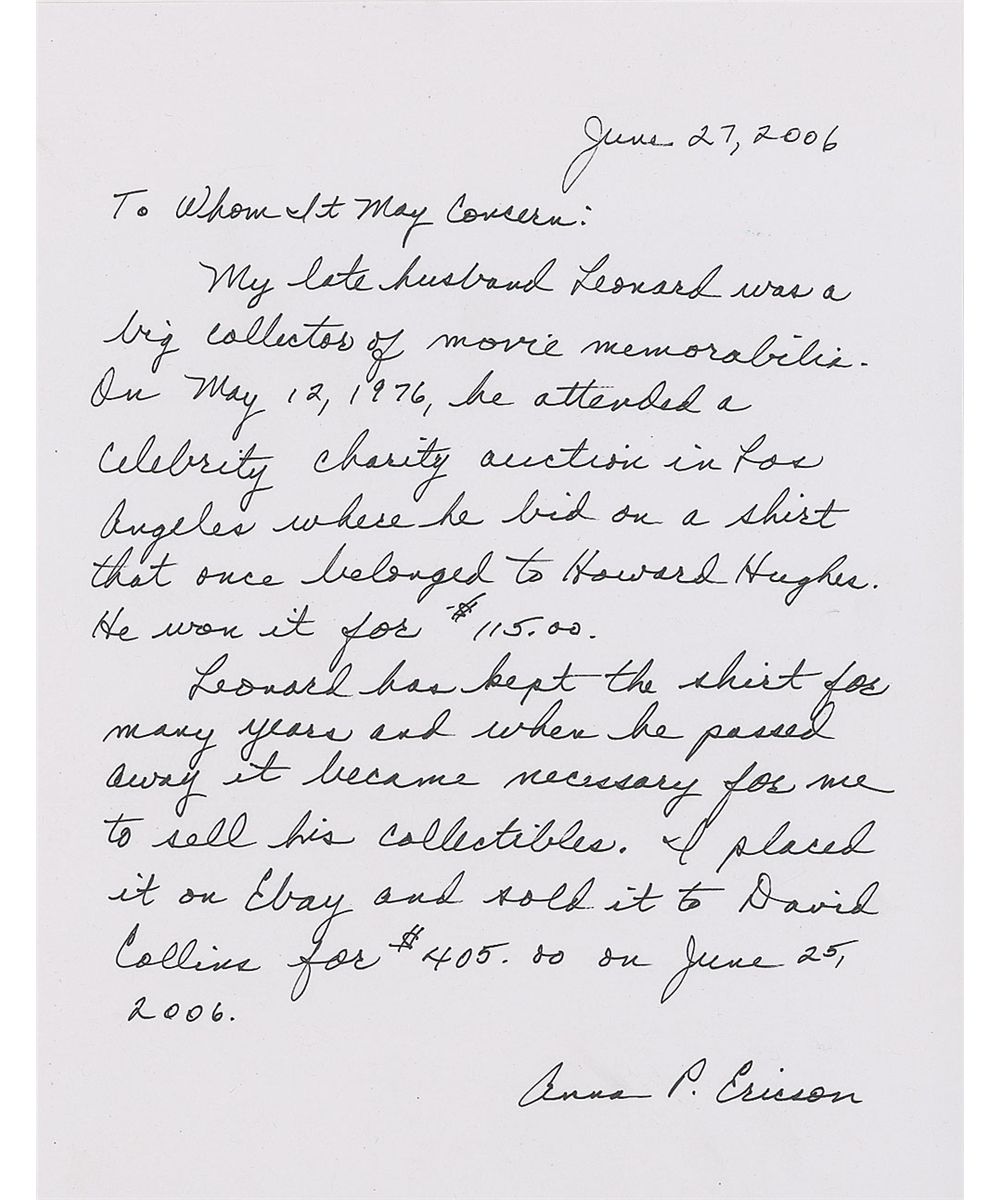 June 27, 2006
To Whom It May Concern:
My late husband Leonard was a
big collector of movie memorabilia.
On May 12, 1976, he attended a
celebrity charity auction in Los
Angeles where he bid on a shirt
that once belonged to Howard Hughes.
He won it for $115.00.
Leonard has kept the shirt for
many years and when he passed
away it became necessary for me
to sell his collectibles. I placed
it on Ebay and sold it to David
Collins for $405.00 on June 25,
2006.
Anna P. Ericson